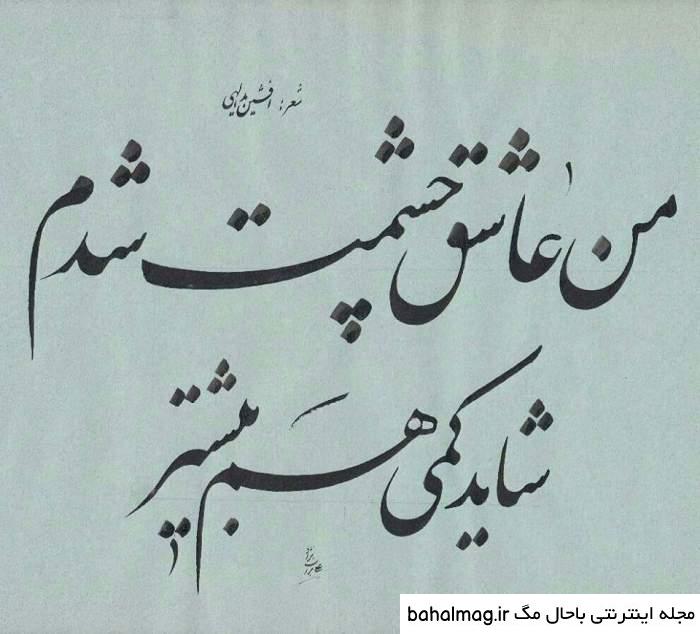 شعر: افشین یداللهی
من عاشق چشمت شدم
شاید کمی هم بیشتر
مجله اینترنتی باحال مگ bahalmag.ir